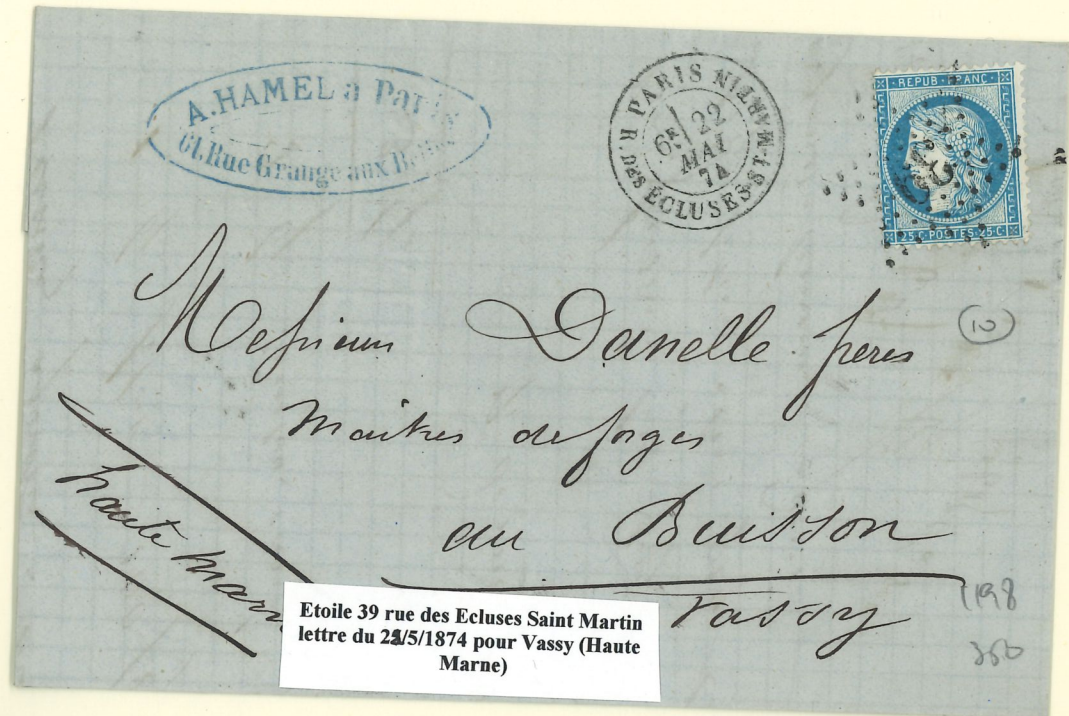 A. HAMEL à Paris
61, Rue Grange aux Belles
PARIS
R. DES ÉCLUSES-ST-MARTIN
22
MAI
74
REPUB. FRANC.
25 C. POSTES. 25 C.
Messieurs Danelle frères
Maitres de forges
au Buisson
Vassy
haute marne
10
1198
350
Etoile 39 rue des Ecluses Saint Martin
lettre du 22/5/1874 pour Vassy (Haute
Marne)